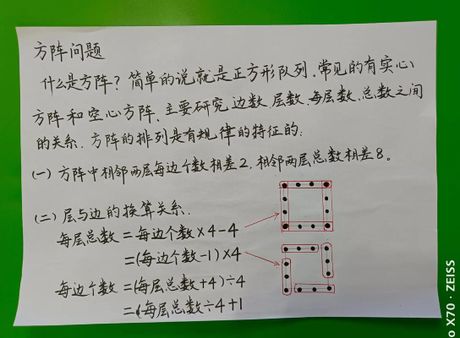 方阵问题
什么是方阵?简单的说就是正方形队列.常见的有实心
方阵和空心方阵、主要研究边数、层数、每层数、总数之间
的关系.方阵的排列是有规律的特征的:
(一)方阵中相邻两层每边个数相差2,相邻两层总数相差8。
(二)层与边的换算关系.
每层总数=每边个数×4-4
=(每边个数-1)×4
每边个数=(每层总数+4)÷4
=(每层总数÷4+1
X70 · ZEISS